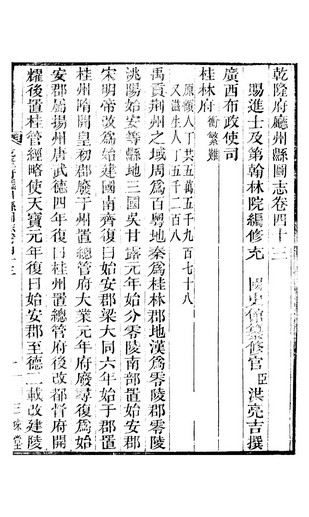 乾隆府廳州縣圖志卷四十三
賜進士及第翰林院編修充 國史館纂修官臣洪亮吉撰
廣西布政使司
桂林府衝繁難
原額人丁共五萬五千九百七十八
又滋生人丁五千二百八
禹貢荆州之域周爲百粵地秦爲桂林郡地漢爲零陵郡零陵
洮陽始安等縣地三國吳甘露元年始分零陵南部置始安郡
宋明帝改爲始建國南齊復曰始安郡梁大同六年始于郡置
桂州隋開皇初郡廢于州置總管府大業元年府廢尋復爲始
安郡屬揚州唐武德四年復曰桂州置總管府後改都督府開
耀後置桂管經略使天寶元年復曰始安郡至德二載改建陵